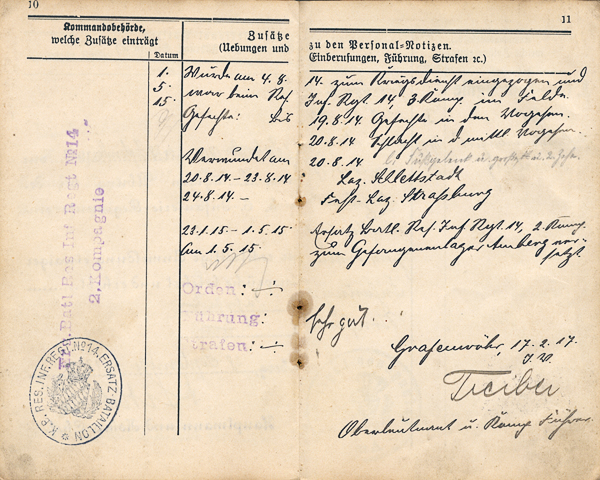 10
Kommandobehörde,
welche Zusätze einträgt
Datum
Zusätze
(Uebungen und
11
zu den Personal-Notizen.
Einberufungen, Führung, Strafen ꝛc.)
1. Wurde am 4.8. 14. zum Kriegsdienst eingezogen und
5. war beim Res. Inf. Rgt 14, 3 Komp im Felde.
15. Gefechte: bis 19.8.14 Gefechte in dem Vogesen.
20.8.14 Schlacht in d. mittl. Vogesen.
Verwundet am 20.8.14
20.8.14 – 23.8.14 Laz. Schlettstadt
24.8.14 – Fest. Laz. Straßburg
23.1.15 – 1.5.15. Ersatz Batl. Res. Inf. Rgt. 14, 2. Komp.
Am 1.5.15. zum Gefangenenlager Amberg ver-
setzt
Ers. Batl Res Inf Regt № 14
2, Kompagnie
Orden: ./.
Führung: Sehr gut.
Strafen: ./.
Grafenwöhr, 17.2.17.
J. V.
Oberleutnant u. Komp. Führer
K.B. RES. INF. REGT. No 14. ERSATZ-BATAILLON